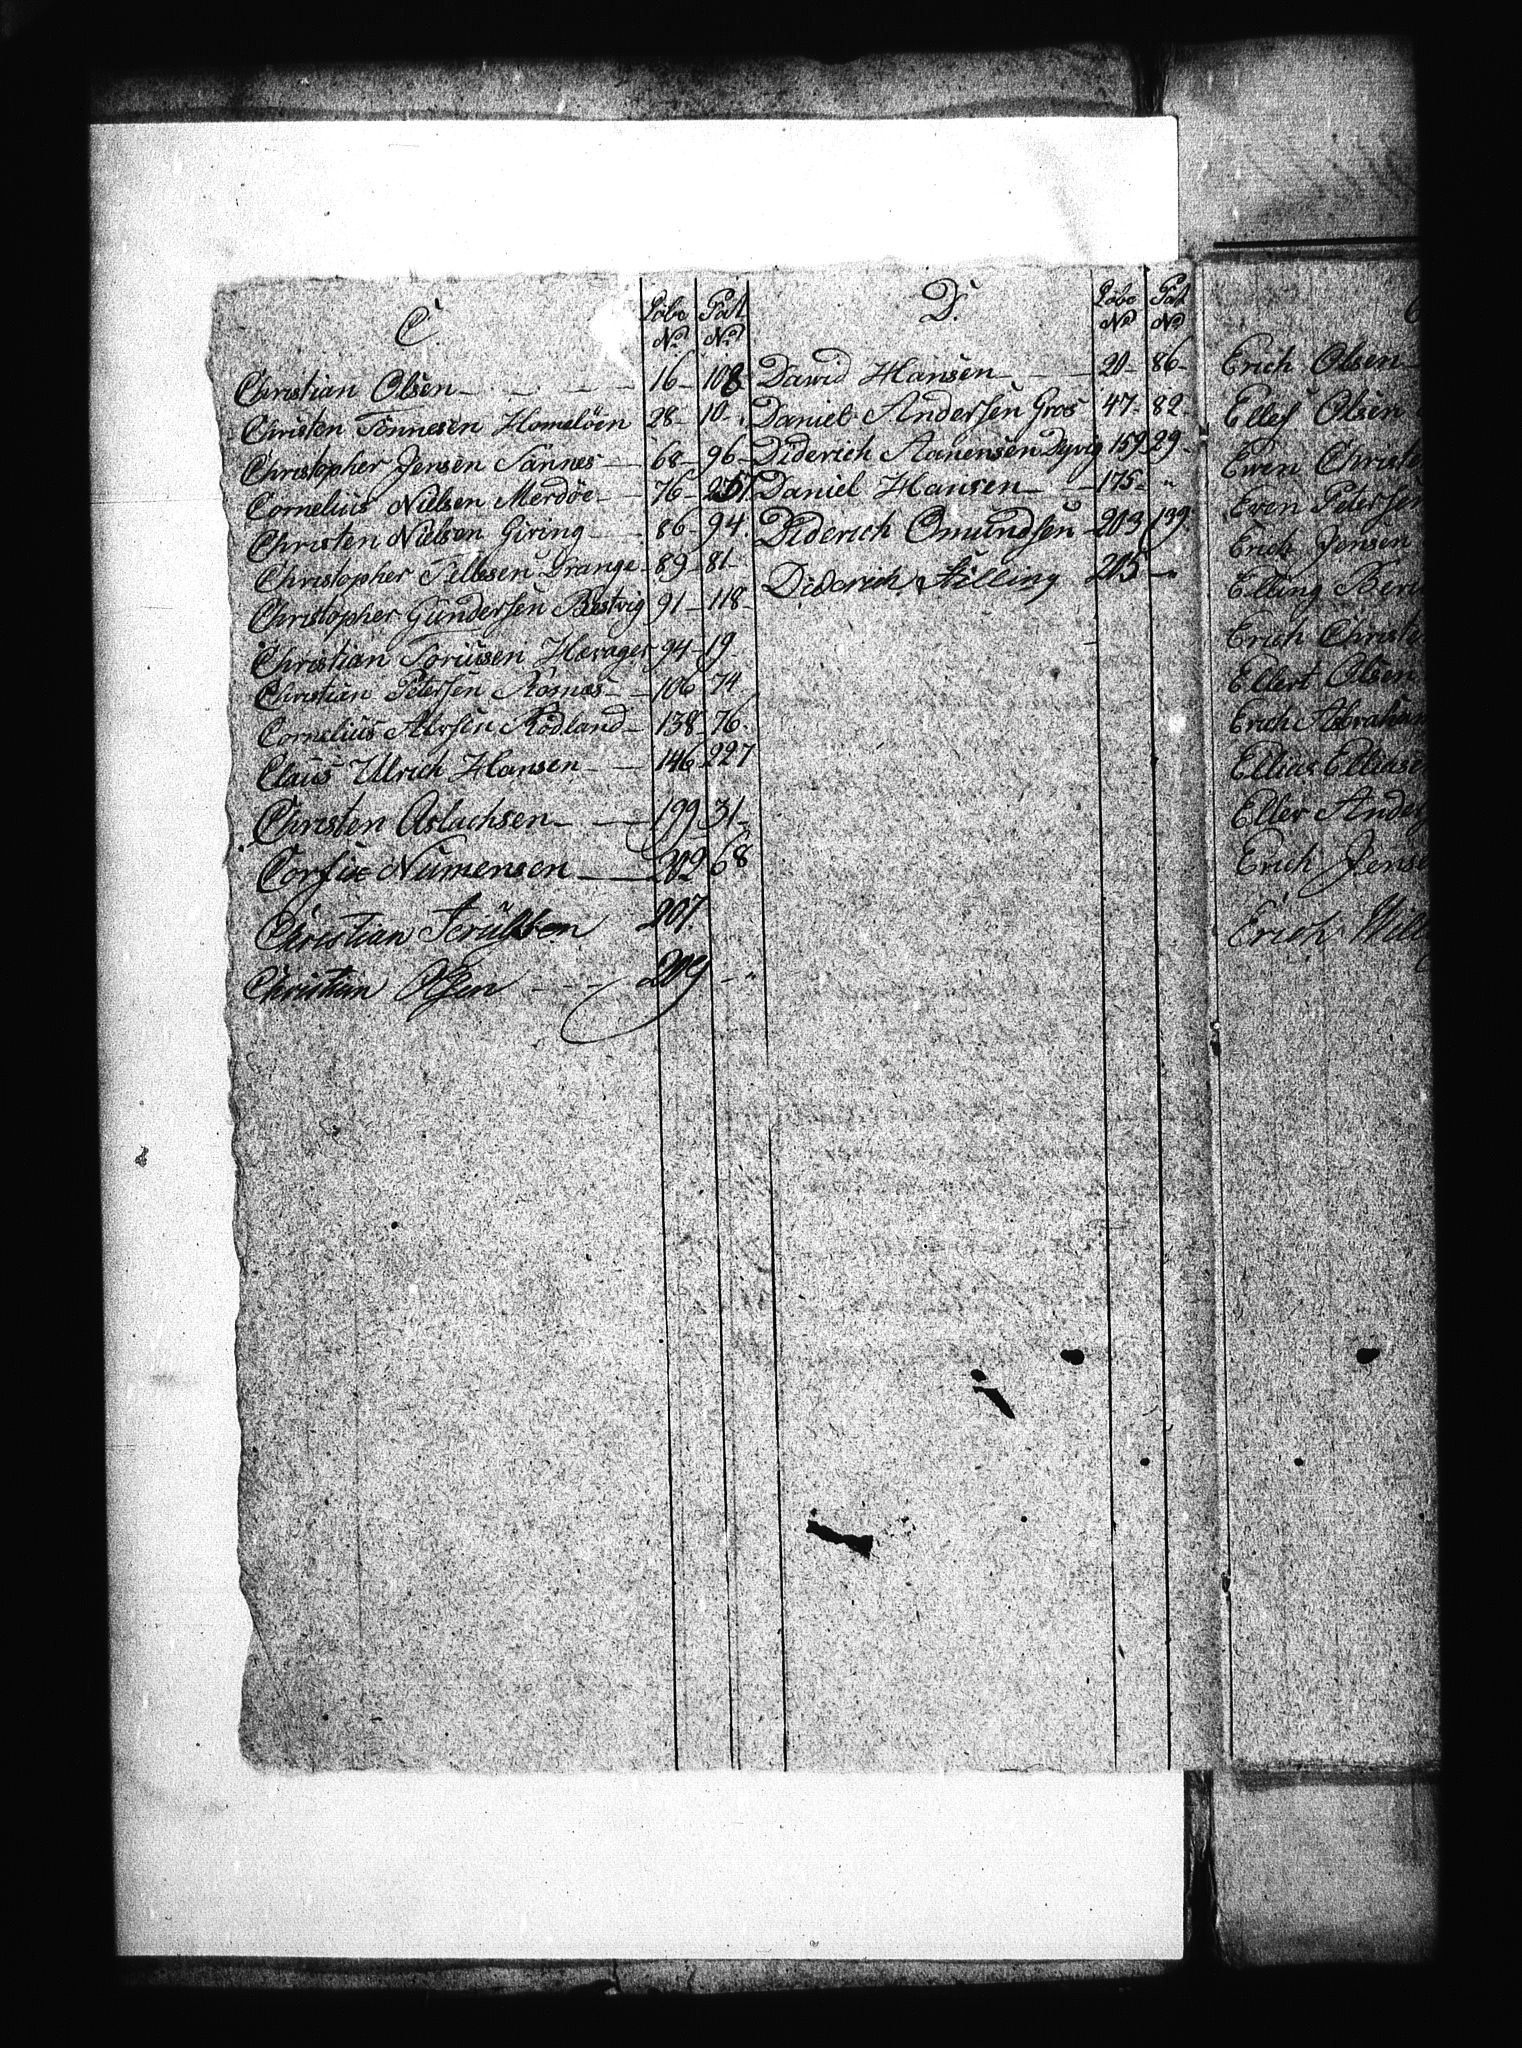 C.
Löbe No
Pat No
Christian Olsen 16 108
Christen Tönnesen Homelöen 28 10
Christopher Jensen Sannes 68 96
Cornelius Nielsen Merdöe 76
Christen Nielsen Giring 86 94
Christopher Tellessen Drange 89 81
Christopher Gundersen 91 118
Christian 94 19
Christian Petersen 106 74
Cornelius Rödland 138 76
Claus Ulrich Hansen 146 227
Christen Aslachsen 199 31
Corfix Numensen 202 68
Christian 207
Christian Olsen 209 "
D.
Löbe No
Pat No
David Hansen 20 86
Daniel Andersen Gros 47 82
Diderich Aanensen Dyvig 159 29
Daniel Hansen 175 "
Diderich Omundsen 203 139
Diderich Stilling 205 "
Erich Olsen
Ellef Olsen
Even Christe
Even Petersen
Erich Jensen
Elling Bern
Erich Christe
Ellert Olsen
Erich Abraham
Ellias Elliasen
EllerAnder
Erich Jense
Erich Will